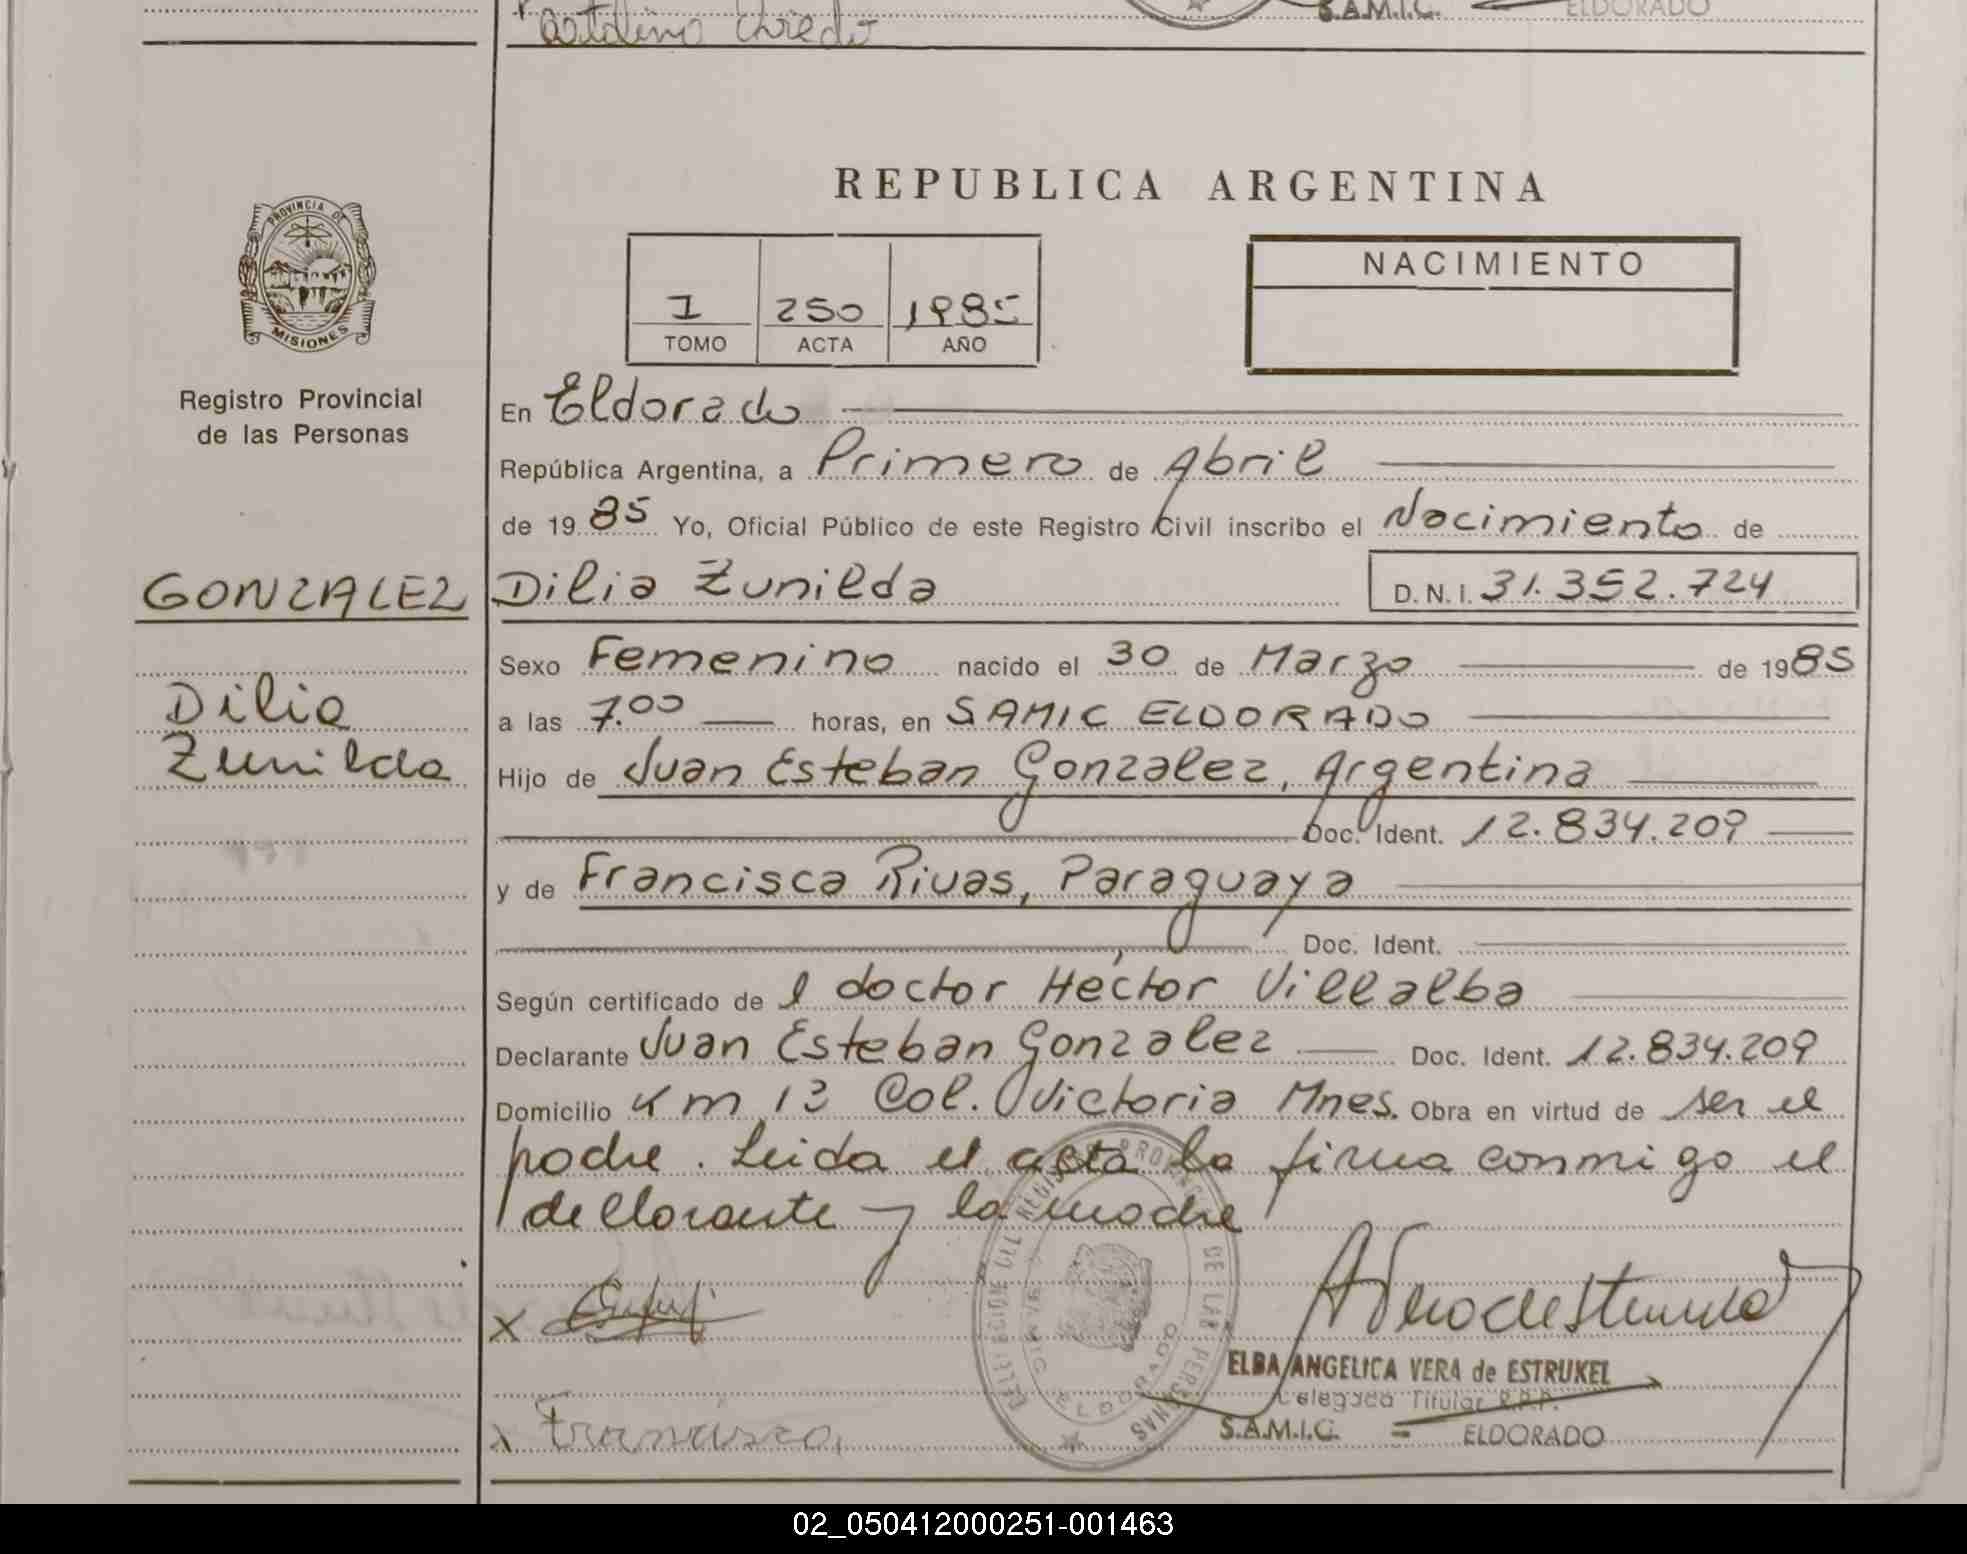 Catalino Oviedo
S.A.M.I.C. ELDORADO
REPUBLICA ARGENTINA
PROVINCIA DE
MISIONES
Registro Provincial
de las Personas
I 250 1985
TOMO ACTA AÑO
NACIMIENTO
En Eldorado
República Argentina, a Primero de Abril
de 1985 Yo, Oficial Público de este Registro Civil inscribo el Nacimiento de
GONZALEZ Dilia Zunilda D.N.I. 31.352.724
Sexo Femenino nacido el 30 de Marzo de 1985
Dilia
a las 7.00 horas, en SAMIC ELDORADO
Zunilda
Hijo de Juan Esteban Gonzalez, Argentina
Doc. Ident. 12.834.209
y de Francisca Rivas, Paraguaya
Doc. Ident.
Según certificado de l doctor Hector Villalba
Declarante Juan Esteban Gonzalez Doc. Ident. 12.834.209
Domicilio Km 13 Col. Victoria Mnes. Obra en virtud de ser el
padre. Leida el acta la firma conmigo el
declarante y la madre
X
ELBA ANGELICA VERA de ESTRUKEL
Delegada Titular R.P.P.
S.A.M.I.C. = ELDORADO
x Francisca
REGISTRO PROVINCIAL DE LAS PERSONAS
ELDORADO
02_050412000251-001463